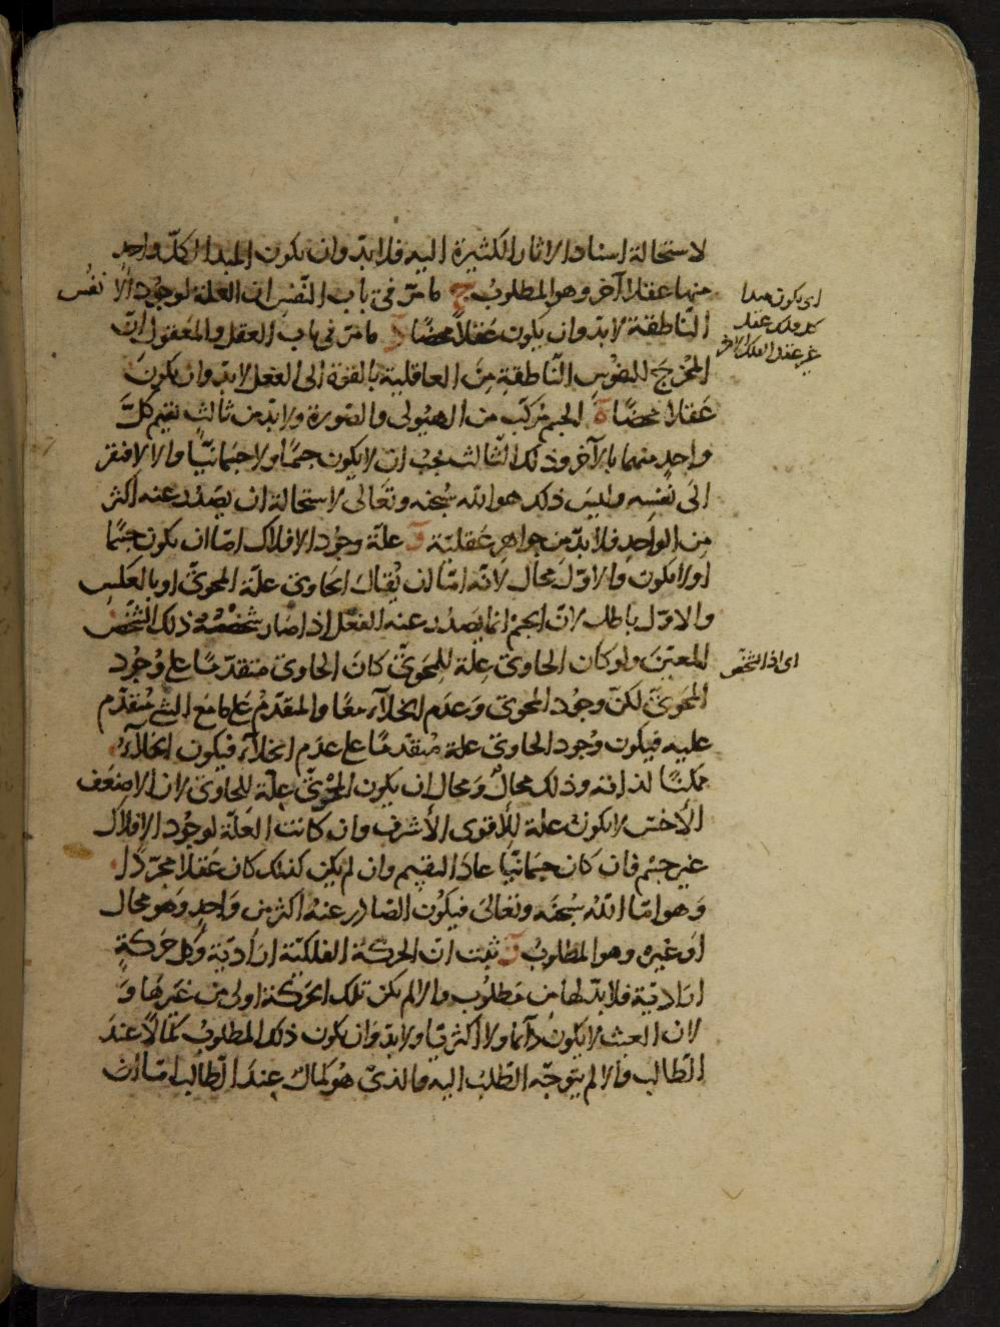 لاستحالة اسناد الاثار الكثيرة اليه فلا بدّ وان يكون المبدا لكلّ واحد
منها عقلا آخر وهو المطلوبُ ج ما مرّ في باب النّفس ان العلة لوجود الانفُس
النّاطقة لا بدّ وان يكون عَقلاً محضًا د ما مرّ في باب العقل والمعقول انّ
المُخرجَ للنفُوسِ النّاطقةِ مِنَ العاقلية بالقوّة الى الفعل لابد وان يكونَ
عَقلا محضًا ة الجسم مركّب من الهيُولى والصّورة ولا بدّ من ثالث يقيم كلَّ
واحدٍ منهما بالآخر وذلك الثّالث يجبُ ان لا يكون جسمًا ولا جسمَانيّاً والا لافتقر
الى نَفسِه وليسَ ذلك هو الله سُبحٰنه وتعَالى لاستحالة ان يصدُر عنه اكثر
مِن الواحدِ فلا بدّ من جواهر عقليّة و علّة وجُود الافلاك امّا ان يكون جسمًا
اولا يكون والاوّل محال لانّه امّا ان يُقال الحاوى علّة المحوىّ او بالعكسِ
والاوّل باطل لانّ الجسمَ انما يصدُر عنه الفعْل اذا صَار شخصًا ذلك الشّخص
المعيّن ولو كان الحاوى عِلّة للمَحوىّ كانَ الحاوى متقدّمًا على وُجُود
المحَوىّ لكن وجُود المحوىّ وَعدَم الخلآء معًا والمتقدّمُ على مَا مَعَ الشّئ مُتقدّم
عليه فيكون وُجود الحاوى علة مُتقدمًا على عدَم الخلآء فيكون الخلآءُ
ممكنًا لذاته وذلك محالٌ وَمحال ان يكون المحْوىّ عِلّة للحاوىّ لان الاضعَف
الأخسّ لا يكون علة لِلأقوى الأشرف وان كانت العَلّة لوجُود الافلاك
غير جسْم فان كان جسمَانيّا عادَ التقسيم وان لم يكن كذلك كان عَقلا مجرّدًا
وَهو امّا اللهُ سُبحٰنَه وتعَالىَ فيكوُن الصّادر عنهُ اكثر من وَاحدٍ وَهو محال
اوَ غيرهُ وهو المطلوبُ ز ثبت ان الحركة الفلكيّة ارَاديّة وكل حَركةٍ
اراديّة فلا بدّ لها من مَطلوُب والا لم يكن تلك الحَركة اولى من غَيرهَا وَ
لان العبث لا يكونُ دآئما ولا اكثريّا ولا بدّ وان يكون ذلك المطلوبُ كمَالاً عندَ
الطّالب والا لم يتوجّه الطّلبُ اليه والذىّ هوُ كمالٌ عندَ الطّالب امّا ان
اى يكون مبدا
كل فلك عقل
غير عقل الفلك الآخر
اى اذا تشخّص